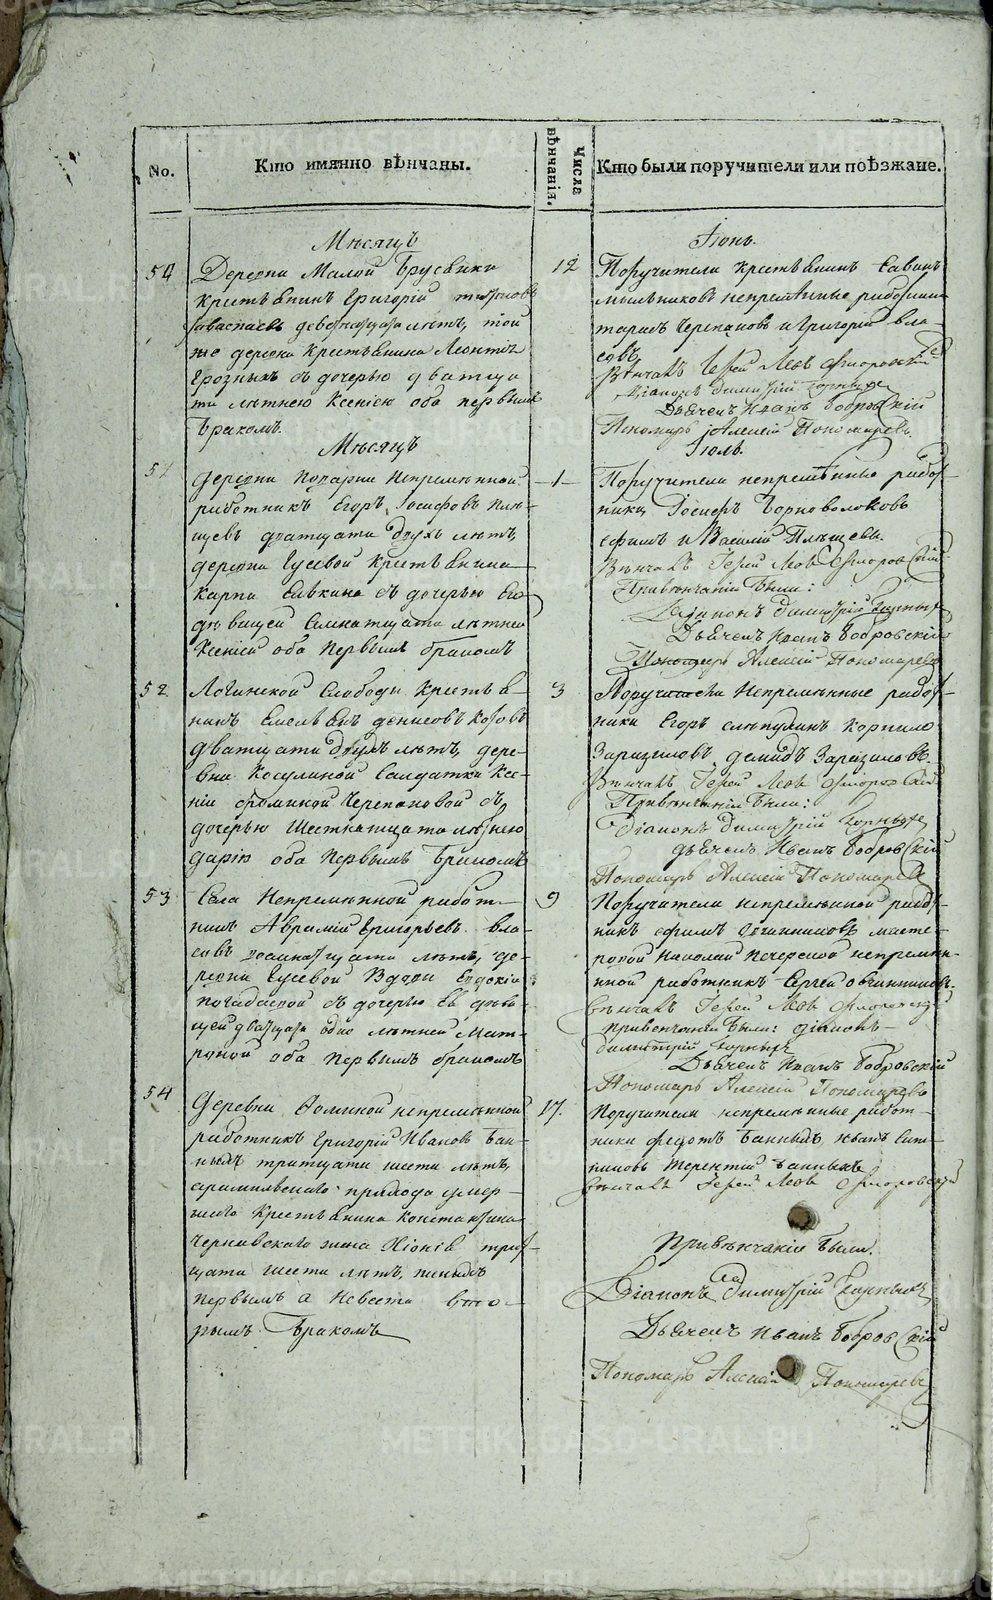 No.
Кто имянно вѣнчаны.
Числа вѣнчанія.
Кто были поручители или поѣзжане.
Мѣсяцъ
Іюнь.
Деревни Малой Брусянки
крестьянинъ Григорій
лѣтъ, той
же деревни крестьянина Леонтія
съ дочерью дватца
ти лѣтнею Ксеніею оба первымъ
бракомъ.
12
Поручители крестьянинъ Савинъ
мыльниковъ непремѣнные работники
Черепановъ и Григорій Вла-
совъ
Вѣнчалъ Іерей Левъ Флоровскій
Діаконъ Димитрій
Дьячекъ Иванъ Бобровскій
Пономарь Алексій Пономаревъ
Мѣсяцъ
Іюль.
51
деревни непремѣнной
работникъ Егоръ Іосифовъ Плѣ-
щевъ дватцати двухъ лѣтъ,
деревни Гусевой крестьянина
Карпа съ дочерью его
дѣвицей семнатцати лѣтней
Ксеніей оба первымъ бракомъ
1
Поручители непремѣнные работ-
ники Іосифъ Чорноволоковъ
ефимъ и Василій Плѣщевы.
Вѣнчалъ Іерей Левъ Флоровскій
Привѣнчаніи были:
Діаконъ Димитрій
Дьячекъ Иванъ Бобровскій
Пономарь Алексій Пономаревъ
52
Логиновской Слободы крестья-
нинъ Емельянъ денисовъ
дватцати двухъ лѣтъ, дере-
вни Косулиной Салдатки Ксе-
ніи Фоминой Черепановой съ
дочерью шестнатцати лѣтнею
дарію оба первымъ бракомъ
3
Поручители Непремѣнные работ-
ники Егоръ Корнило
демидъ
Вѣнчалъ Іерей Левъ Флоровскій
Привѣнчаніи были:
Діаконъ Димитрій
дьячекъ Иванъ Бобровскій
Пономарь Алексій Пономаревъ
53
Села Непремѣнной работ-
никъ Аврамій Григорьевъ Вла-
совъ лѣтъ, де-
ревни Гусевой Вдовы Евдокіи
съ дочерью ея дѣви-
цей дватцати одно лѣтней Мат-
роной оба первымъ бракомъ
9
Поручители непремѣнной работ-
никъ ефимъ Овчинниковъ масте-
ровой Николай Печерской непремѣн-
ной работникъ Сергей овчинниковъ.
Вѣнчалъ Іерей Левъ Флоровскій
привенчаніи были: діаконъ
димитрій
Дьячекъ Иванъ Бобровскій
Пономарь Алексій Пономаревъ
54
Деревни Фоминой непремѣнной
работникъ Григорій Ивановъ Бан-
ныхъ тритцати шести лѣтъ,
арамильскаго прихода умер-
шаго крестьянина Константина
Чернавскаго жена Хіонія трит-
цати шести лѣтъ,
первымъ а невеста вто-
рымъ бракомъ
17.
Поручители непремѣнные работ-
ники федотъ Банныхъ иванъ Сит-
никовъ терентій банныхъ
Вѣнчалъ Іерей Левъ Флоровскій
Привѣнчаніи были.
Діаконъ Димитрій
Дьячекъ Иванъ Бобровскій
Пономарь Алексій Пономаревъ
METRIKI.GASO-URAL.RU